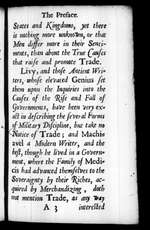 The Preface.
States and Kingdoms, yet there
is nothing more unknown, or that
Men differ more in their Senti-
ments, than about the True Causes
that raise and promote Trade.
Livy, and those Antient Wri-
ters, whose elevated Genius set
them upon the Inquiries into the
Causes of the Rise and Fall of
Governments, have been very ex-
act in describing the several Forms
of Military Discipline, but take no
Notice of Trade; and Machia-
vel a Modern Writer, and the
best, though he lived in a Govern-
ment, where the Family of Medi-
cis had advanced themselves to the
Soveraignty by their Riches, ac-
quired by Merchandizing, doth
not mention Trade, as any way
A 3 interested